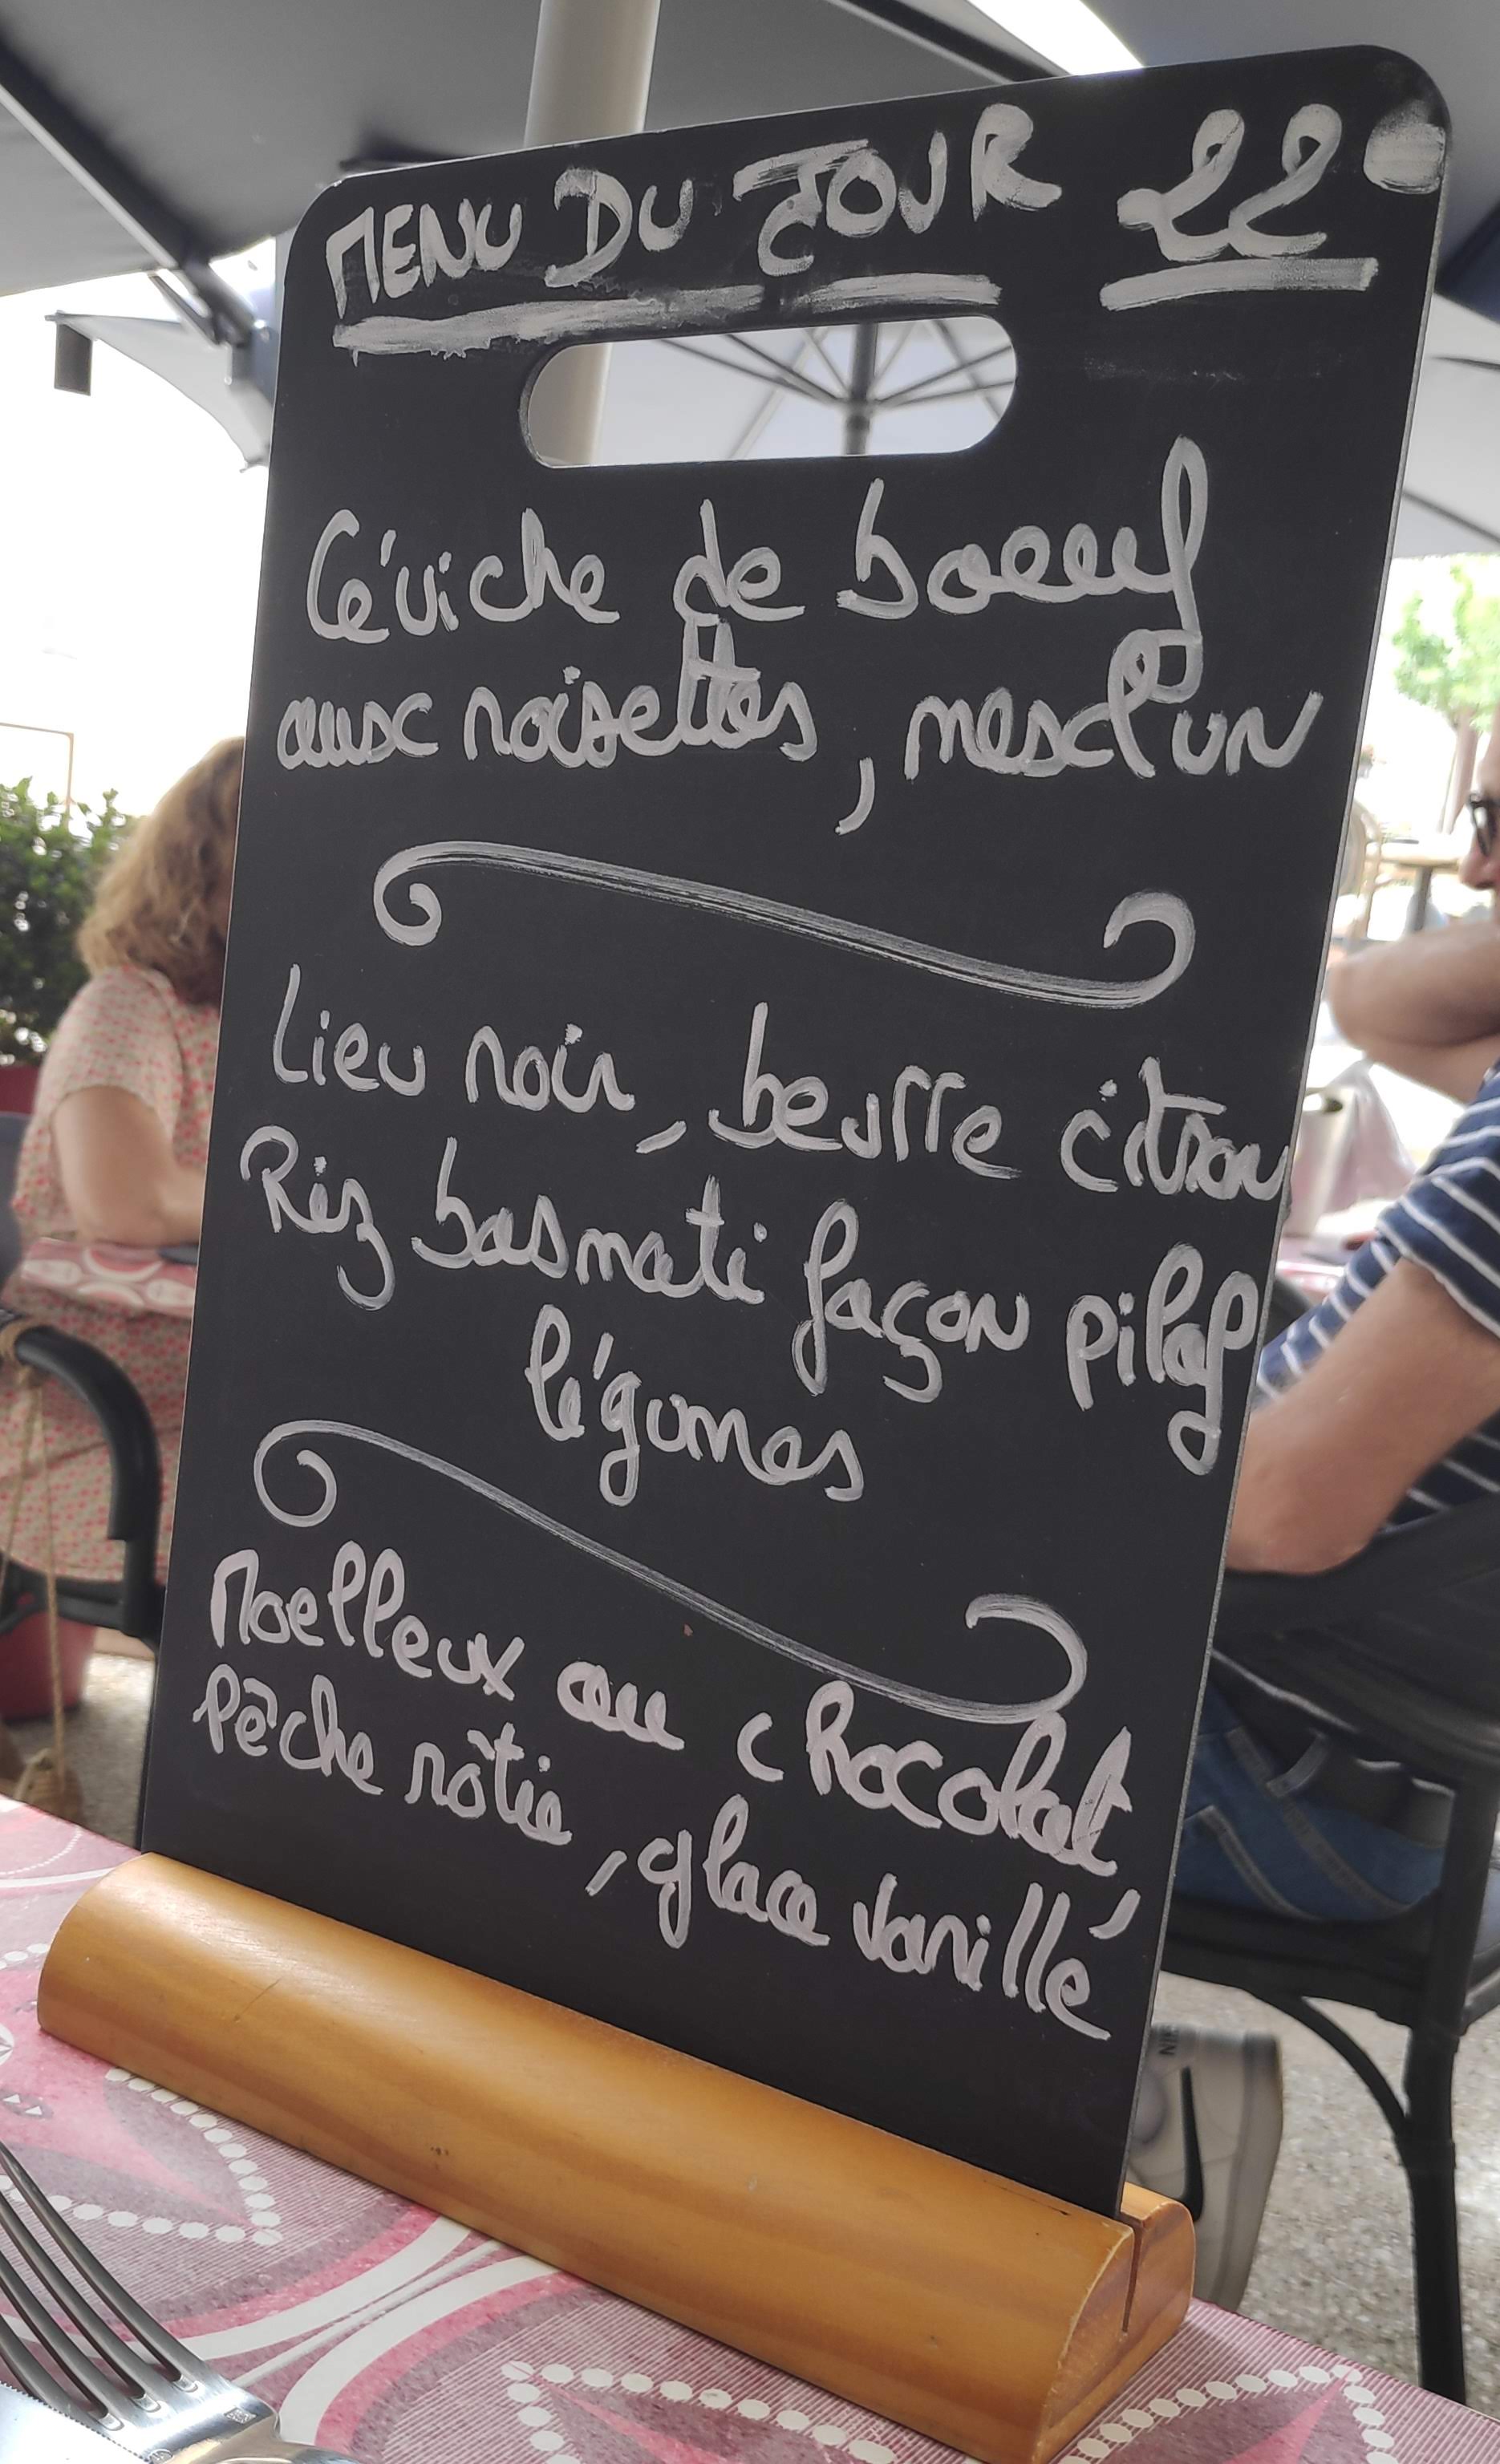 MENU DU JOUR 22€
Céviche de boeuf
aux noisettes, mesclun
Lieu noir, beurre citron
Riz basmati façon pilaf
légumes
Moelleux au chocolat,
Pêche rôtie, glace vanille